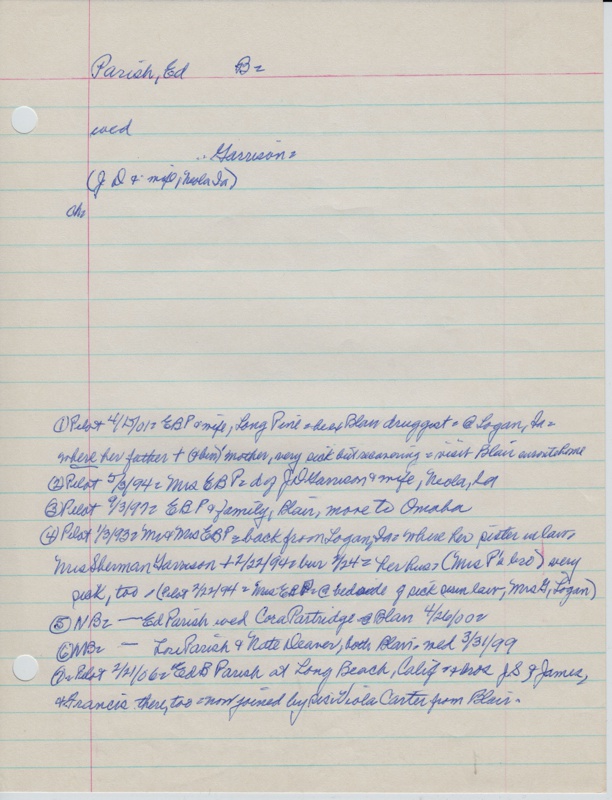 Parish, Ed B=
wed
.. Garrison=
(J D & wife, Neola Ia)
ch=
① Pilot 4/15/01= EBP & wife, Long Pine = Blair druggist = @ Logan, Ia=
where her father + mother, very sick but recovering = visit Blair enroute home
② Pilot 5/3/94= Mrs EBP= d of J D Garrison & wife, Neola, Ia
③ Pilot 9/3/97= EBP & family, Blair, move to Omaha
④ Pilot 1/3/93= Mr & Mrs EBP= back from Logan, Ia= where her sister in law,
Mrs Sherman Garrison + 2/22/94= bur 2/24= her hus= (Mrs P's bro) very
sick, too = (Pilot 2/22/94= Mrs EBP= @ bedside of sick sis in law, Mrs G, Logan)
⑤ NB= — Ed Parish wed Cora Partridge @ Blair 4/26/00=
⑥ NB= — Parish & Nate Deaver, both Blair= wed 3/31/99
7= Pilot 2/21/06= Ed B Parish at Long Beach, Calif = bros J S & James,
& Francis there, too = now joined by sis Viola Carter from Blair=